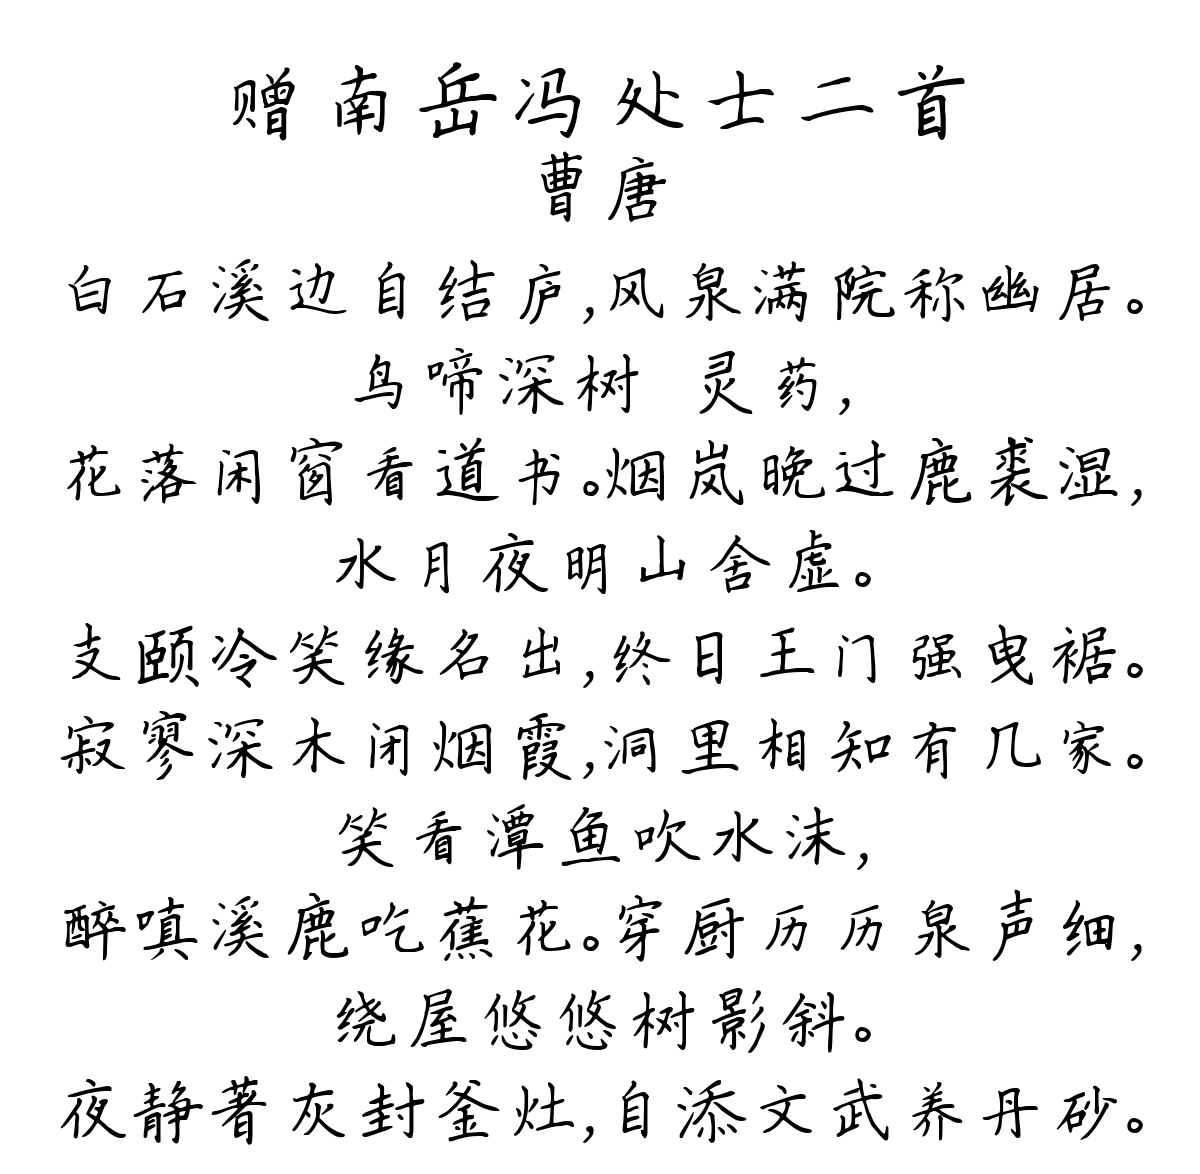 赠南岳冯处士二首
曹唐
白石溪边自结庐,风泉满院称幽居。
鸟啼深树 灵药,
花落闲窗看道书。烟岚晚过鹿裘湿,
水月夜明山舍虚。
支颐冷笑缘名出,终日王门强曳裾。
寂寥深木闭烟霞,洞里相知有几家。
笑看潭鱼吹水沫,
醉嗔溪鹿吃蕉花。穿厨历历泉声细,
绕屋悠悠树影斜。
夜静著灰封釜灶,自添文武养丹砂。